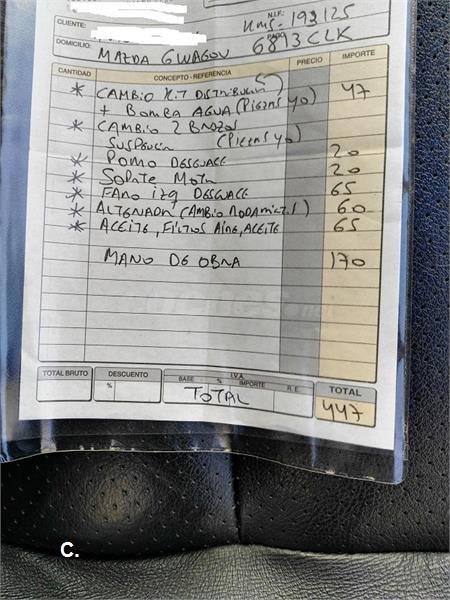 N.I.F.:
Kms- 193125
CLIENTE:
PAGO
6813CLK
DOMICILIO: MAZDA 6 WAGOU
CANTIDAD CONCEPTO - REFERENCIA PRECIO IMPORTE
* CAMBIO K.T DISTRIBUCION 47
+ BOMBA AGUA (PIEZAS YO)
* CAMBIO 2 BRAZOS
SUSPENSION (PIEZAS YO)
* POMO DESGUACE 20
* SOPORTE MOTOR 20
* FARO IZQ DESGUACE 65
* ALTERNADOR (CAMBIO RODAMIENTO) 60
* ACEITE, FILTROS AIRE, ACEITE 65
MANO DE OBRA 170
TOTAL BRUTO DESCUENTO I.V.A. TOTAL
% BASE % IMPORTE R.E.
TOTAL 447
C.